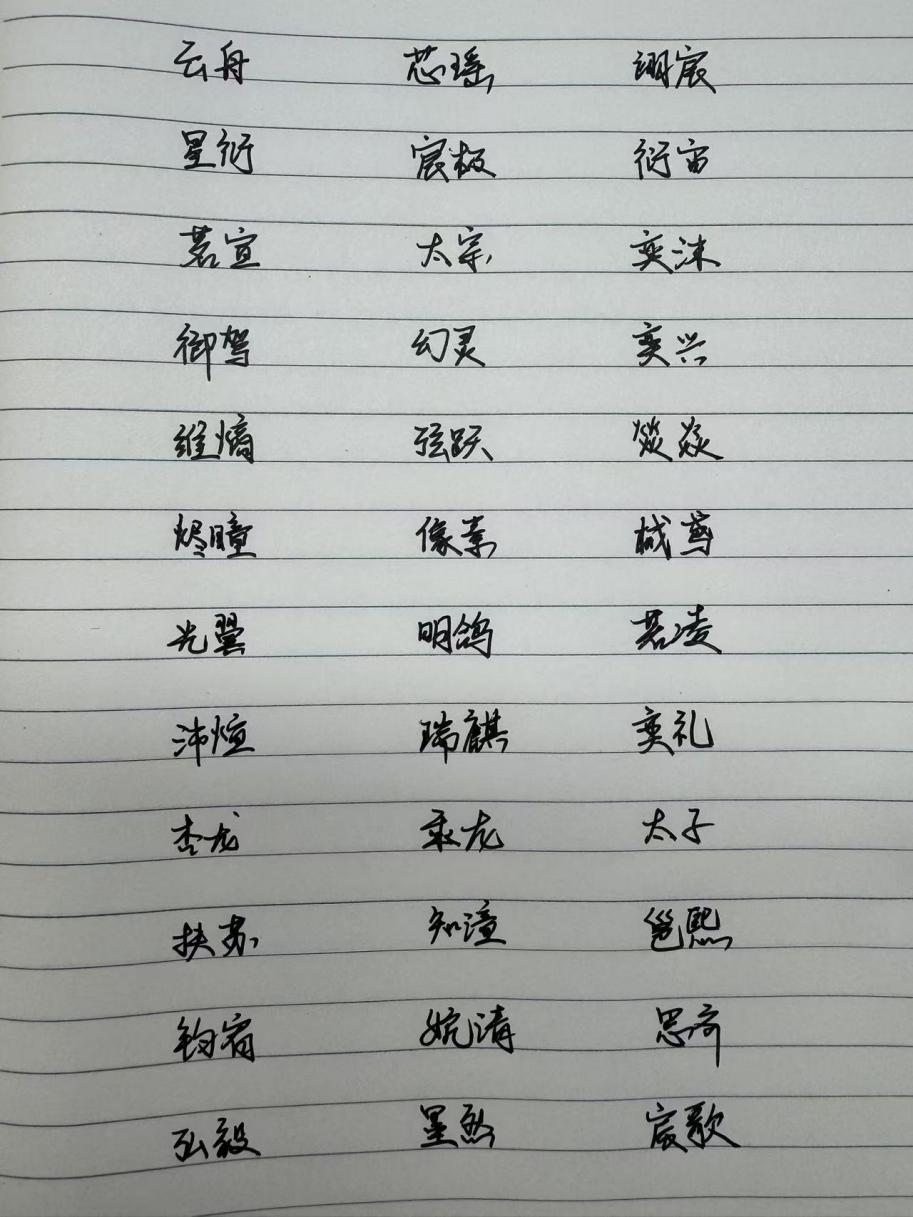 云舟 芯瑶 翊宸
星衍 宸极 衍宙
茗宣 太宗 奕沫
御驾 幻灵 奕兴
维熵 弦跃 燚焱
烬瞳 像素 械鸢
光翼 明鸽 若凌
沛煊 瑞麒 奕礼
杏龙 乘龙 太子
扶苏 知潼 邕熙
钧宥 婉清 思奇
弘毅 星煞 宸歌